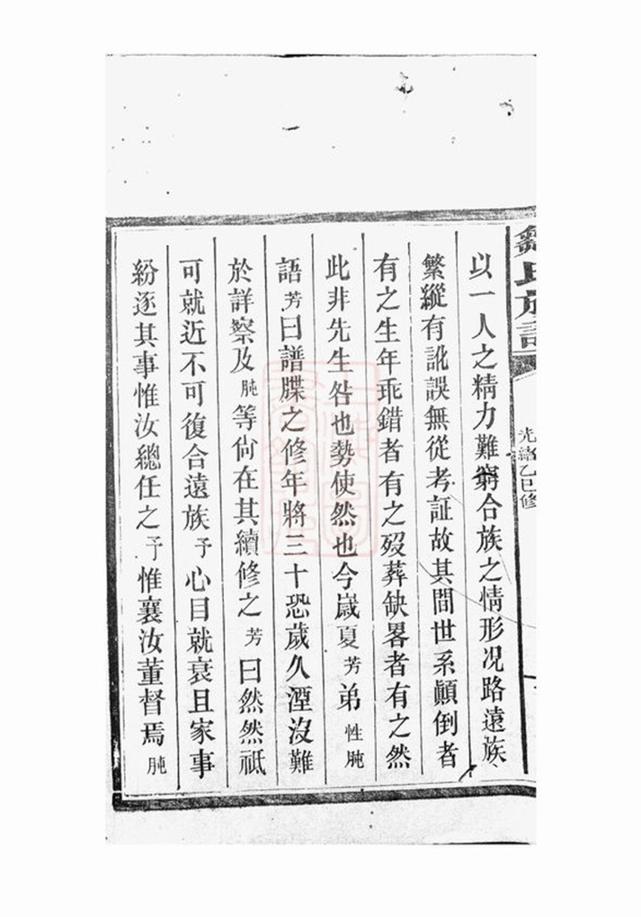 氏族譜
光緒乙巳修
以一人之精力難窮合族之情形况路遠族
繁縱有訛誤無從考証故其間世系顚倒者
有之生年乖錯者有之歿葬缺畧者有之然
此非先生咎也勢使然也今歲夏芳弟性肫
語芳曰譜牒之修年將三十恐歲久湮沒難
於詳察及肫等尙在其續修之芳曰然然祇
可就近不可復合遠族予心目就衰且家事
紛逐其事惟汝總任之予惟襄汝董督焉肫